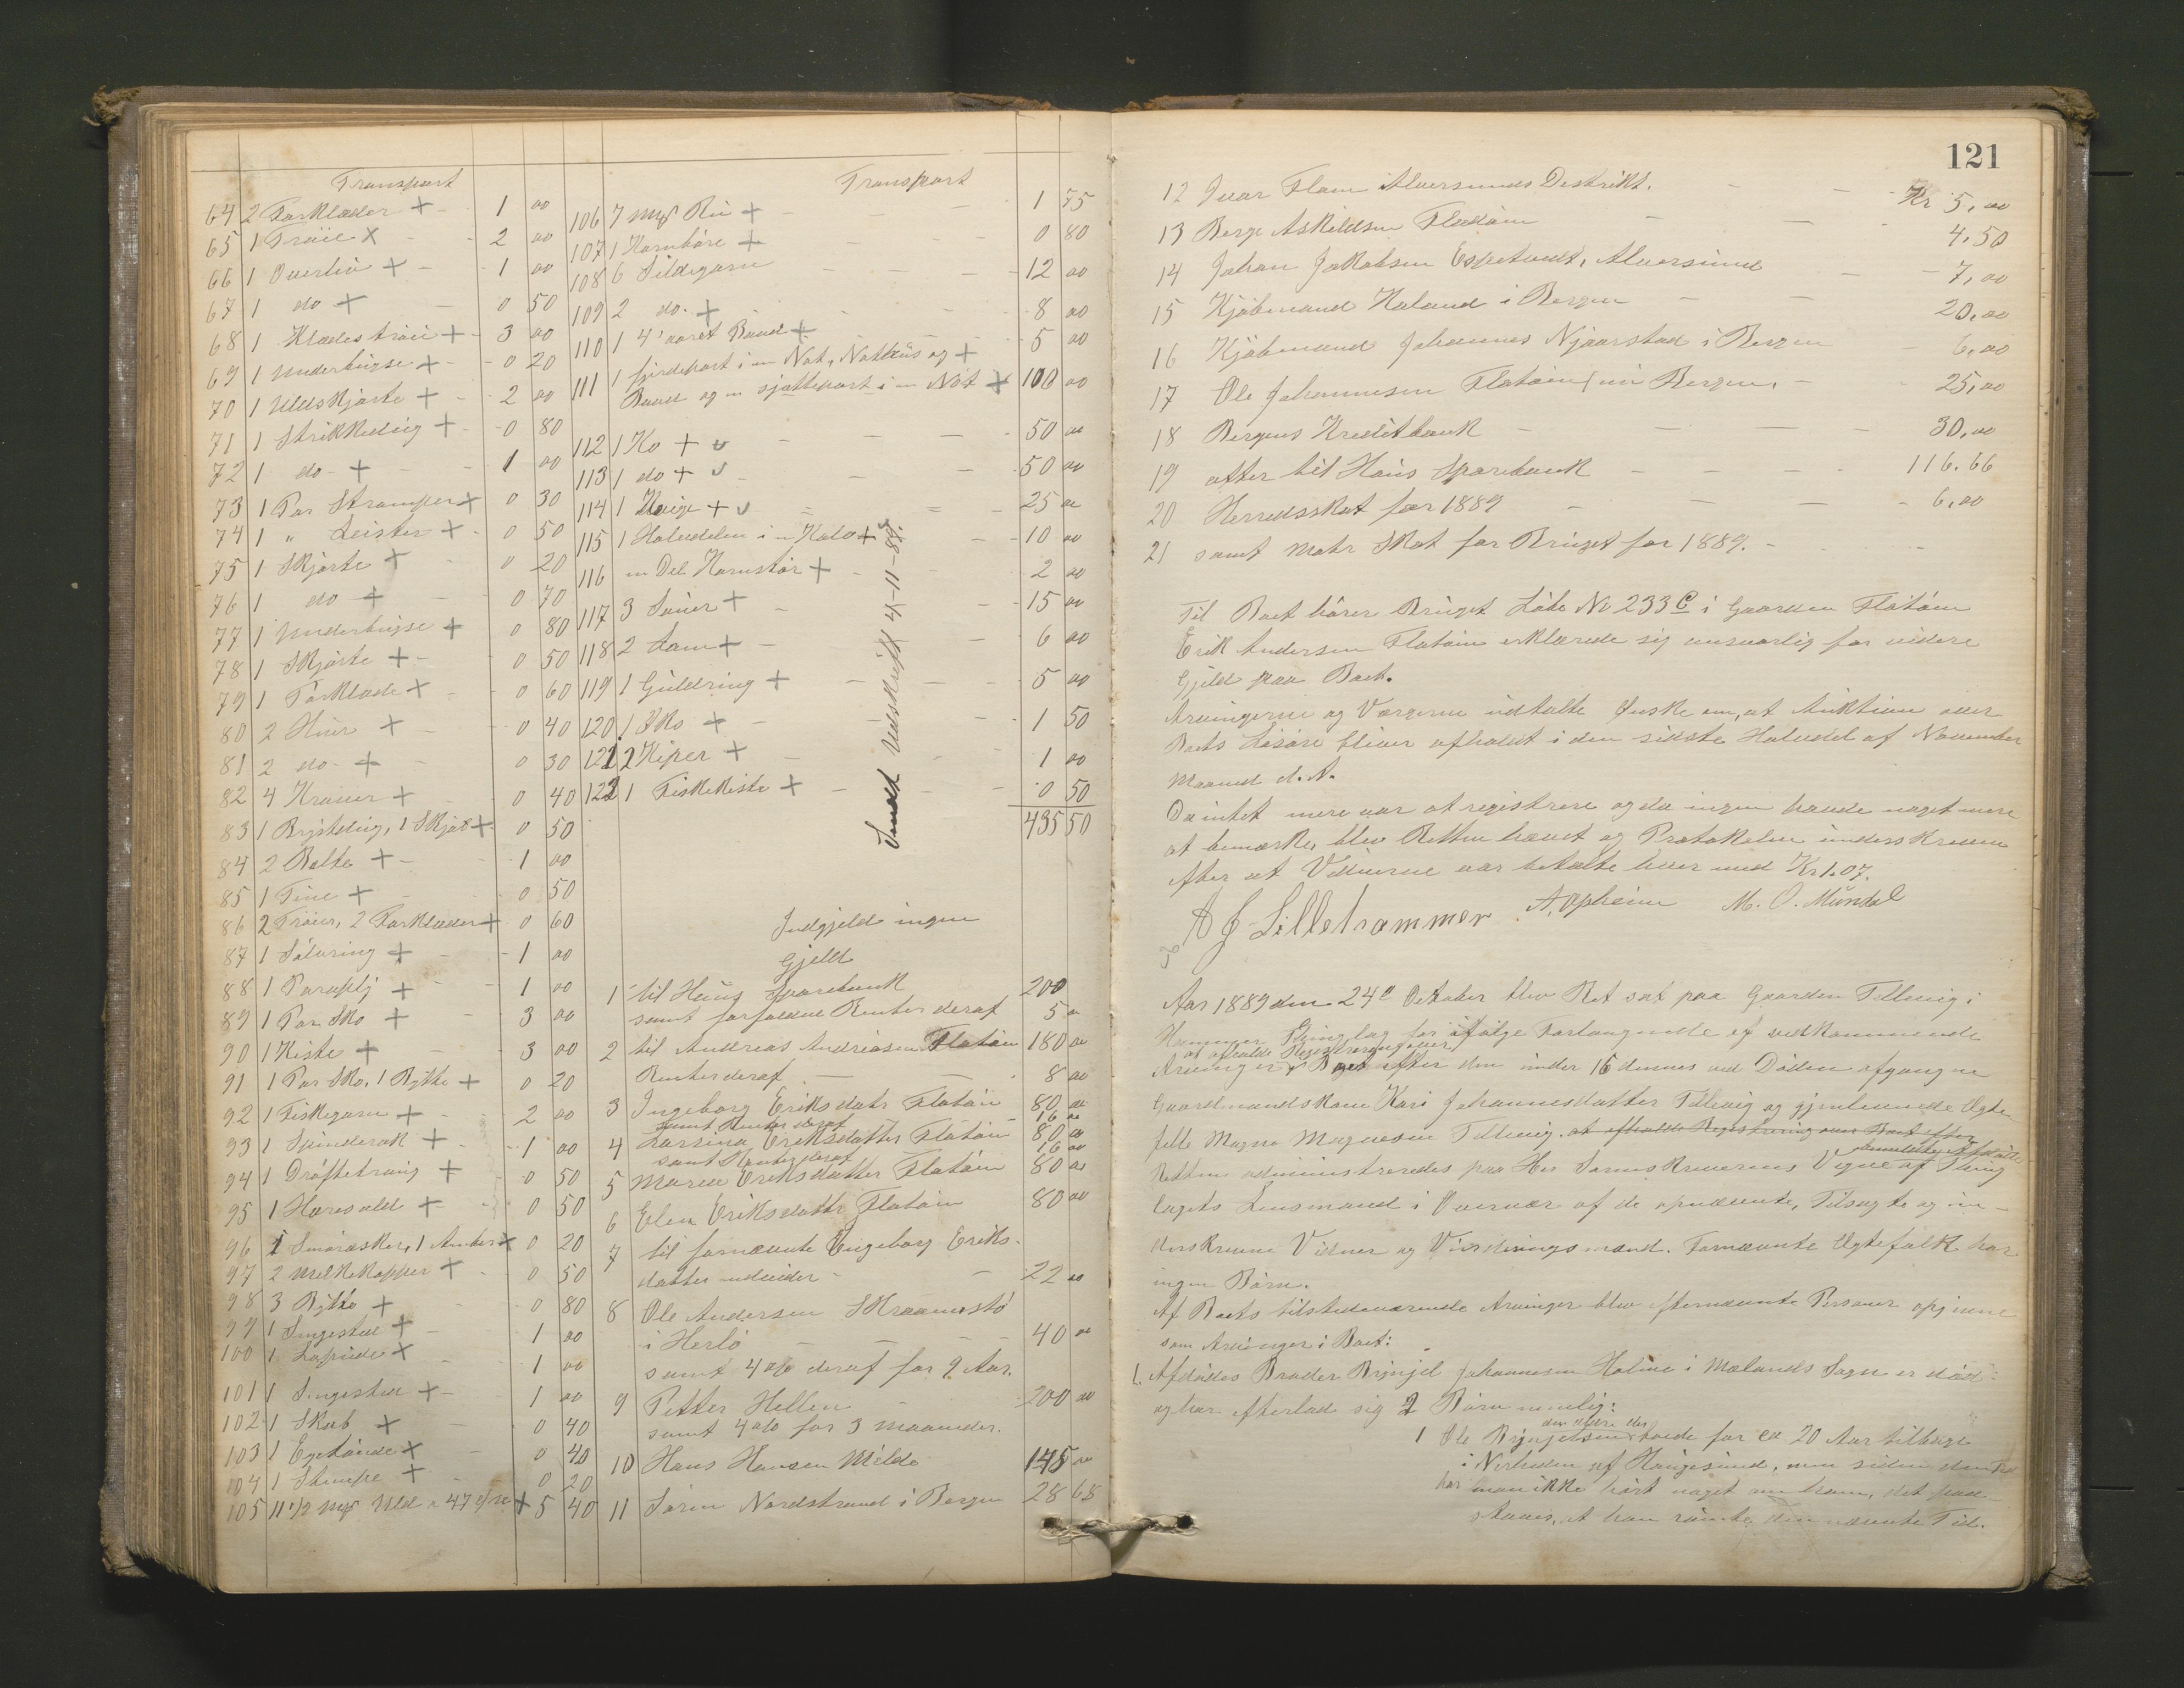 Transport
64 2 Forklæder + 1 00
65 1 Trøie x 2 00
66 1 Overliv + 1 00
67 1 do + 0 50
68 1 Klædestrøie + 3 00
69 1 Underbugse + 0 20
70 1 Uldskjorte + 2 00
71 1 Strikketøig + 0 80
72 1 do + 1 00
73 1 Par Strømper + 0 30
74 1 " Leister + 0 50
75 1 Skjorte + 0 20
76 1 do + 0 70
77 1 Underbugse + 0 80
78 1 Skjorte + 0 50
79 1 Forklæde + 0 60
80 2 Huer + 0 40
81 2 do + 0 30
82 4 Kraver + 0 40
83 1 Brystdug, 1 Skjørt + 0 50
84 2 Belte + 1 00
85 1 Tine + 0 50
86 2 Trøier, 2 Forklæder + 0 60
87 1 Sølvring + 1 00
88 1 Paraply + 1 00
89 1 Par Sko + 3 00
90 1 Kiste + 3 00
91 1 Par Sko, 1 Bøtte + 0 20
92 1 Fiskegarn + 2 00
93 1 Spinderok + 1 00
94 1 Drøftetraug + 0 50
95 1 Haresold + 0 50
96 1 Smøræsker, 1 Amber x 0 20
97 2 Melkekopper + 0 50
98 3 Bøtte + 0 80
99 1 Sengested + 1 00
100 1 x 1 00
101 1 Sengested + 1 00
102 1 Skab + 0 40
103 1 Egetønde x 0 40
104 1 Stampe + 0 20
105 11 1/2 Mrk Uld a 47 Øre + 5 40
Transport 1 75
106 7 Mrk Ru +
107 1 Kornbøre + 0 80
108 6 Sildegarn 12 00
109 2 do. + 8 00
110 1 4 aaret Baad + 5 00
111 1 fjirdepart i en Not, Nøthus og + 100 00
Baad og en sjettepart i en Not +
112 1 Ko + v 50 00
113 1 do + v 50 00
114 1 Kvige + v 25 00
115 1 Halvdelen i en Kalv + v 10 00
116 en Del Kornstør + 2 00
117 3 Sauer + 15 00
118 2 Lam + 6 00
119 1 Guldring + 5 00
120 1 Sko + 1 50
121 2 Kiper + 1 00
122 1 Fiskekiste + 0 50
435 50
Sendt Udskrift 4-11-89.
Indgjeld ingen
Gjeld
1 til Haus Sparebank 200
samt forfaldne Renter deraf 5 00
2 til Andreas Andreasen Flatøen 180 00
Renter deraf 8 00
3 Ingeborg Eriksdatr Flatøen 80 00
samt Renter deraf 16 00
4 Larsina Eriksdatter Flatøen 80 00
samt Renter deraf 16 00
5 Maria Eriksdatter Flatøen 80 00
6 Elen Eriksdattr Flatøen 80 00
7 til fornævnte Engeborg Eriks-
datter 22 00
8 Ole Andersen Skraamestø
i Herlø 40 00
samt 4 o/o deraf for 9 Aar.
9 Petter Hellen 200 00
samt 4 o/o for 3 maaneder.
10 Hans Hansen Milde 145 00
11 Søren Nordstrand i Bergen 28 68
121
12 Ivar Flem Alversunds Destrikt. Kr 5,00
13 Berge Askildsen Fladøen 4,50
14 Johan Jakobsen Espetvedt, Alversund 7,00
15 Kjøbmand Haland i Bergen 20,00
16 Kjøbmand Johannes Njaarstad i Bergen 6,00
17 Ole Johannesen Flatøen, nu Bergen, 25,00
18 Bergens Kreditbank 30,00
19 atter til Haus Sparebank 116,66
20 Herredsskat for 1889 6,00
21 samt Matr Skat for Bruget for 1889.
Til Boet hører Bruget Løbe No 233 C i Gaarden Flatøen
Erik Andersen Flatøen erklærede sig uansvarlig for videre
Gjeld paa Boet.
Arvingerne og Værgerne udtalte Ønske om, at Auktion over
Boets Løsøre bliver afholdt i den sidste Halvdel af November
Maaned d. A.
Da intet mere var at registrere og da ingen havde noget mere
at bemærke, blev Retten hævet og Protokolen underskreven
efter at Vidnerne var betalte hver med Kr 1,07.
A J Lilletrammer A, Opheim M. O. Mundal
Aar 1889 den 24de Oktober blev Ret sat paa Gaarden Tellevig i
Hammer Thinglag for ifølge Forlangende af vedkommende
at afholde Registrering over
Arvinger i Boet efter den under 15 dennes ved Døden afgangne
Gaardmandskone Kari Johannesdatter Tellevig og gjenlevende Ægte-
felle Magne Magnesen Tellevig. at afholde Registrering over Boet efter
Retten administreredes paa Hr Sorenskriverens Vegne af Thing
lagets Lensmand i Overvær af de opnævnte, Tilsagte og un-
derskrevne Vidner og Vurderingsmænd. Fornævnte Ægtefolk har
ingen Børn.
Af Boets tilstedeværende Arvinger blev efternævnte Personer opgivne
som Arvinger i Boet:
1. Afdødes Broder Brynjel Johannesen Holme i Mælands Sogn er død
og har efterlad sig 2 Børn nemlig:
den eldre der
1 Ole Brynjelsen boede for ca 20 Aar tilbage
i Nerheden af Haugesund, men siden den Tid
har man ikke hørt noget om ham, det paa-
staaes, at han rømte den nævnte Tid.